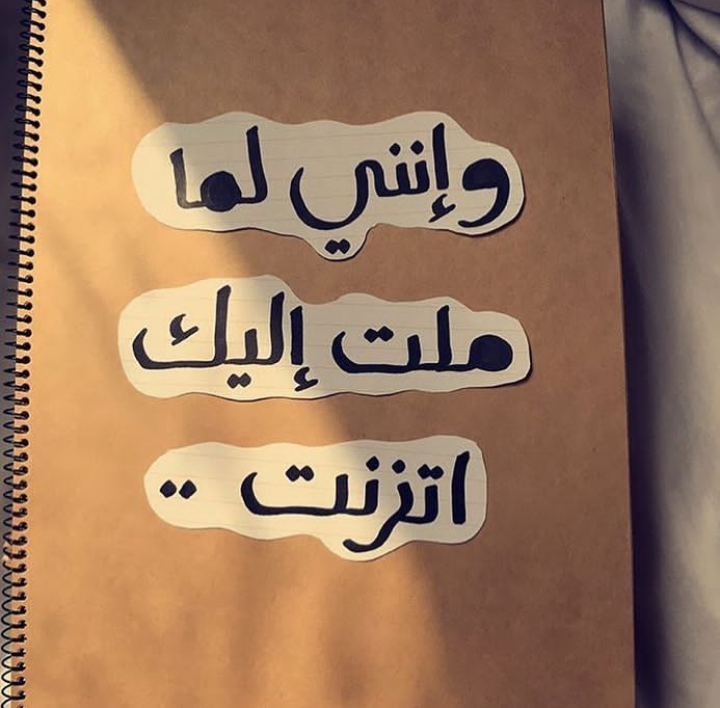 وإنني لما
ملت إليك
اتزنت ..